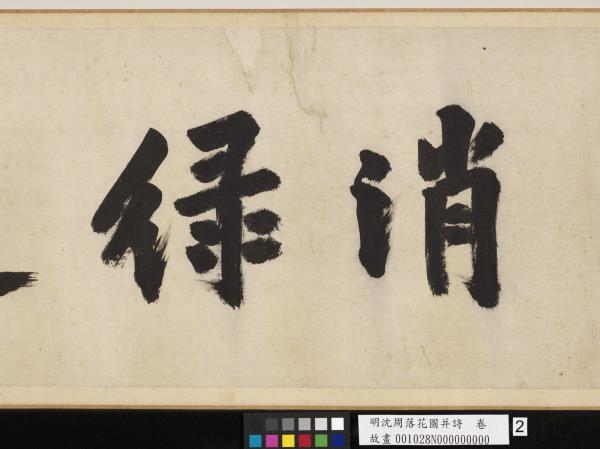 消緑
明沈周落花圖并詩 卷
故畫 001028N000000000
2